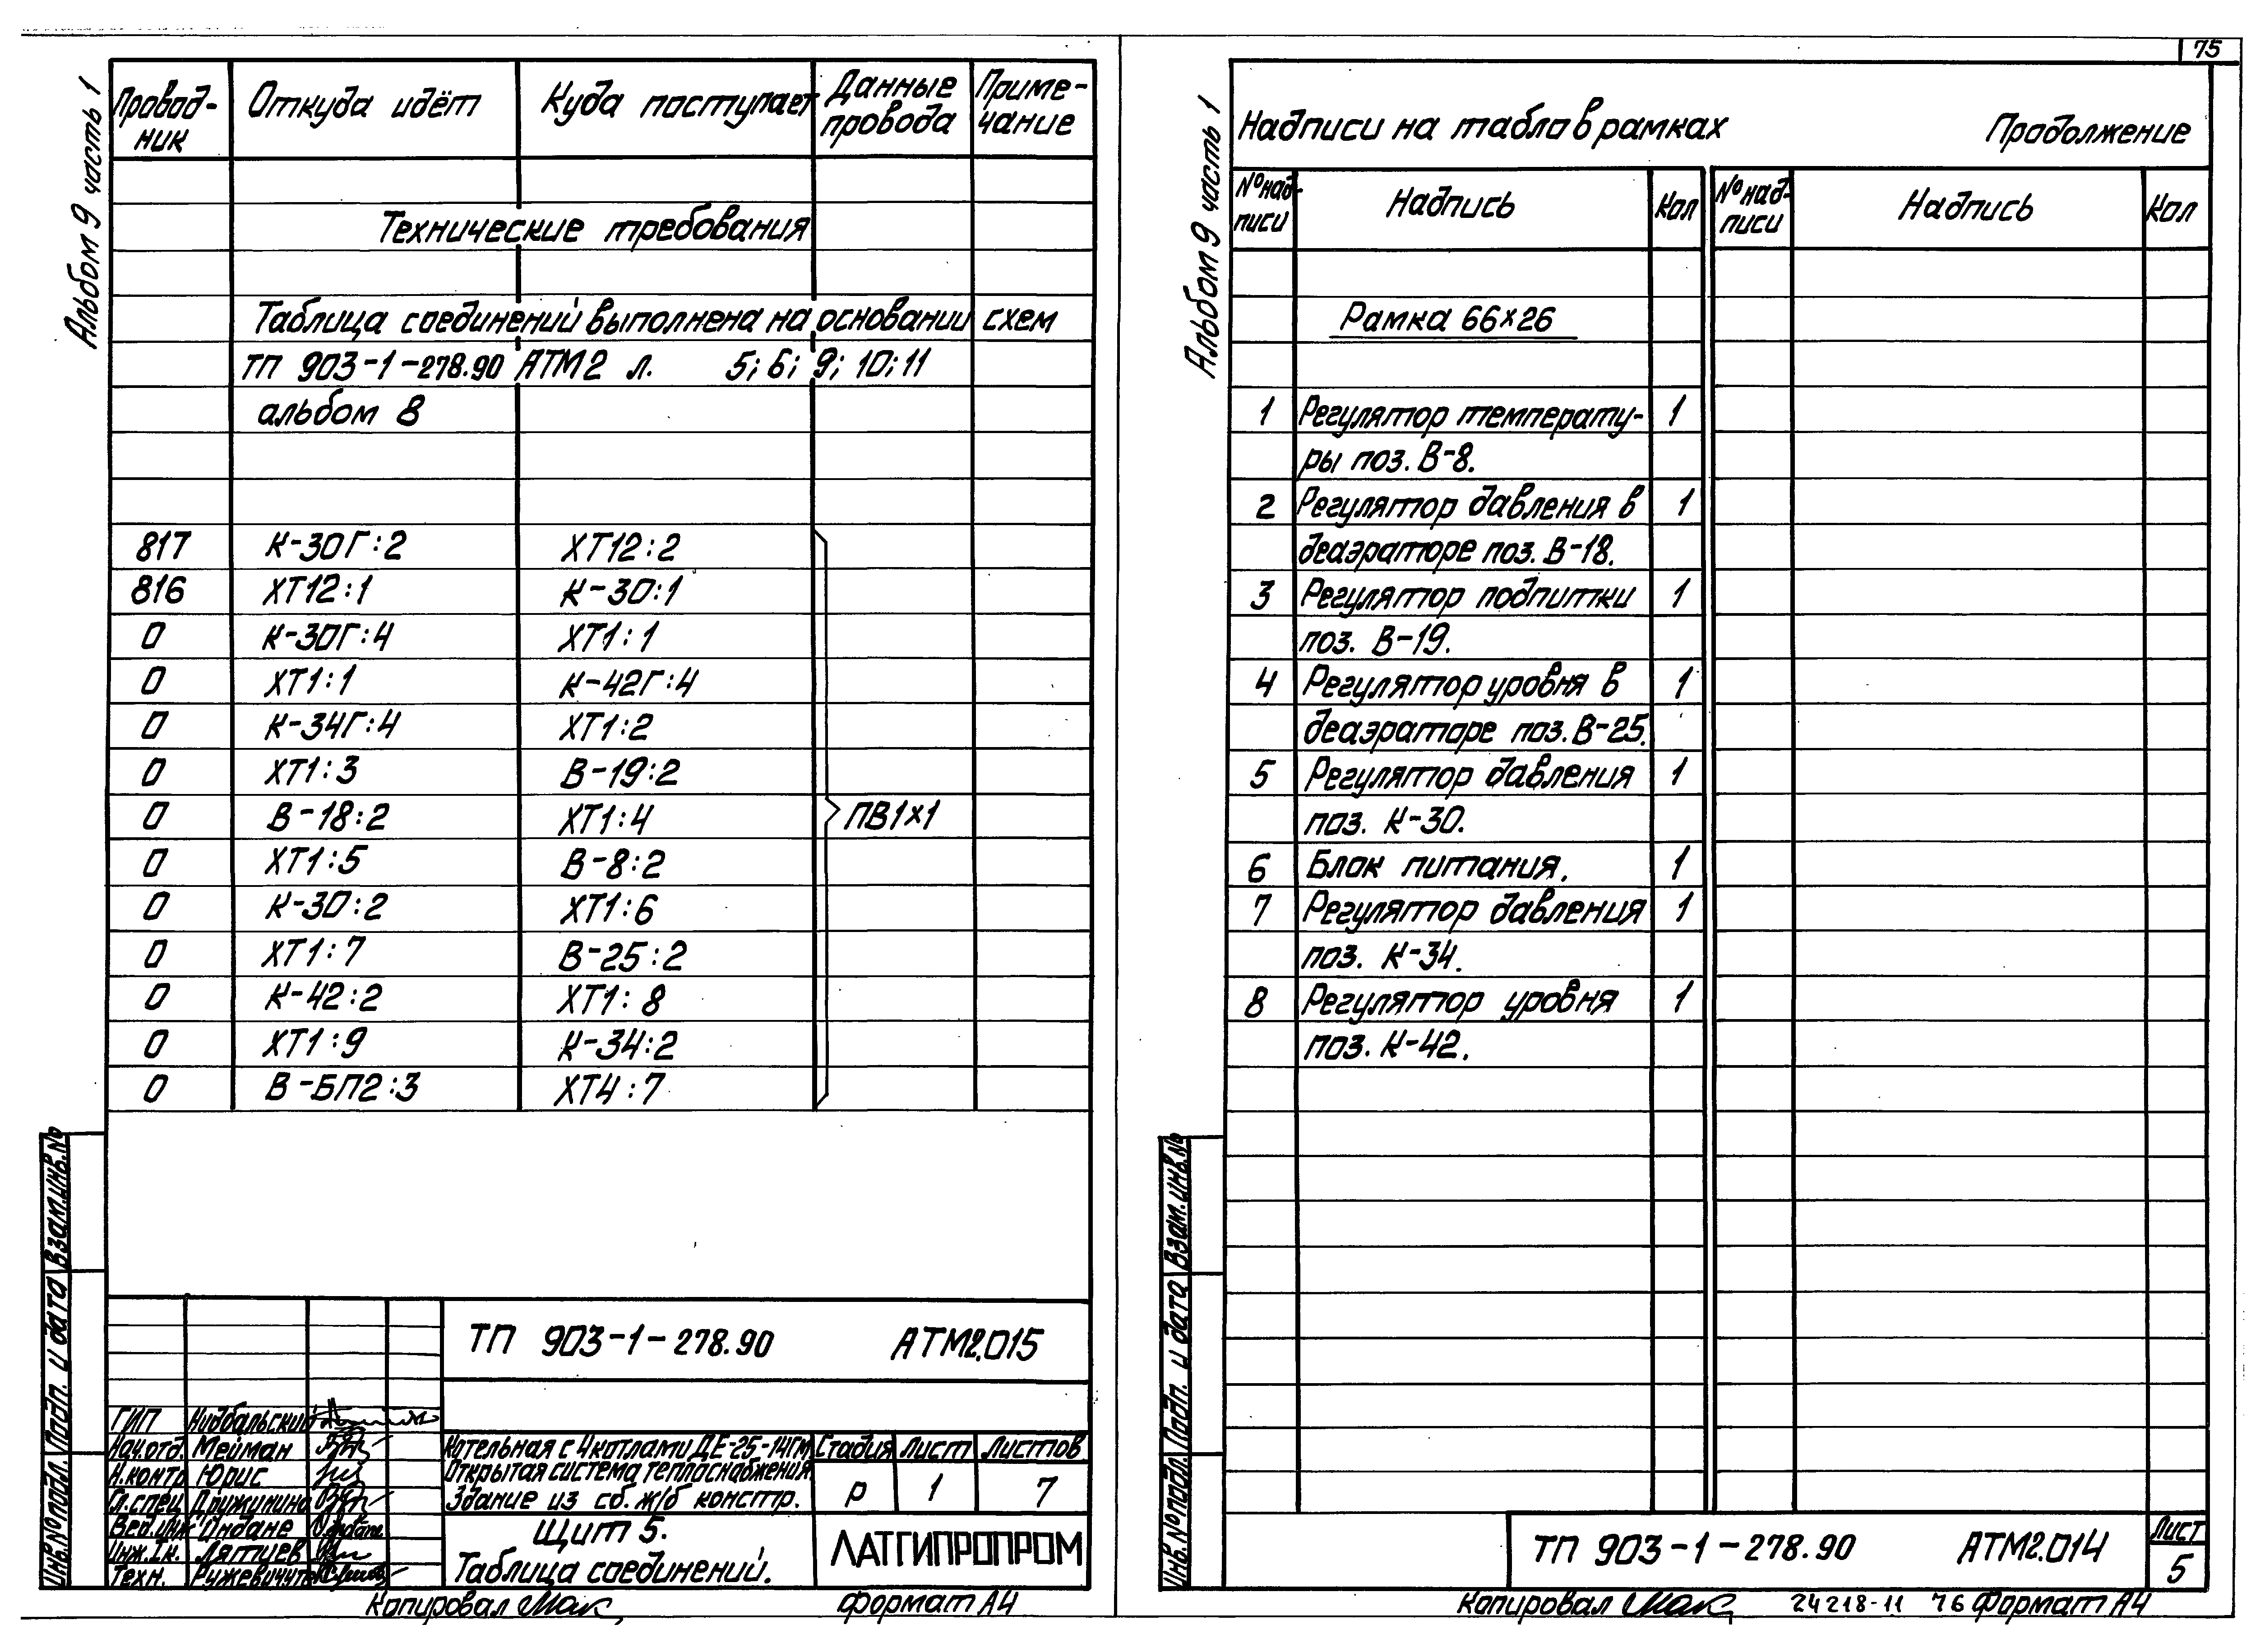 75
Альбом 9 часть 1
Провод-ник Откуда идёт Куда поступает Данные провода Приме-чание
Технические требования
Таблица соединений выполнена на основании схем
ТП 903-1-278.90 АТМ2 л. 5; 6; 9; 10; 11
альбом 8
817 К-30Г:2 ХТ12:2
816 ХТ12:1 К-30:1
0 К-30Г:4 ХТ1:1
0 ХТ1:1 К-42Г:4
0 К-34Г:4 ХТ1:2
0 ХТ1:3 В-19:2
0 В-18:2 ХТ1:4 ПВ1х1
0 ХТ1:5 В-8:2
0 К-30:2 ХТ1:6
0 ХТ1:7 В-25:2
0 К-42:2 ХТ1:8
0 ХТ1:9 К-34:2
0 В-БП2:3 ХТ4:7
Взам.инв.№
Подп. и дата
Инв.№ подл.
ТП 903-1-278.90 АТМ2.015
ГИП Нидбальский
Нач.отд. Мейман
Н.контр Юрис
Гл.спец Дружинина
Вед.инж Ондане
Инж.Iк. Лятиев
Техн.
Котельная с 4 котлами ДЕ-25-14ГМ
Открытая система теплоснабжения
Здание из сб. ж/б констр.
Стадия Лист Листов
Р 1 7
Щит 5.
Таблица соединений.
ЛАТГИПРОПРОМ
Копировал Формат А4
Альбом 9 часть 1
Надписи на табло в рамках Продолжение
№ над-писи Надпись Кол № над-писи Надпись Кол
Рамка 66×26
1 Регулятор температу- 1
ры поз. В-8.
2 Регулятор давления в 1
деаэраторе поз. В-18.
3 Регулятор подпитки 1
поз. В-19.
4 Регулятор уровня в 1
деаэраторе поз. В-25.
5 Регулятор давления 1
поз. К-30.
6 Блок питания. 1
7 Регулятор давления 1
поз. К-34.
8 Регулятор уровня 1
поз. К-42.
Взам.инв.№
Подп. и дата
Инв.№ подл.
ТП 903-1-278.90 АТМ2.014
Лист
5
Копировал 24218-11 76 Формат А4